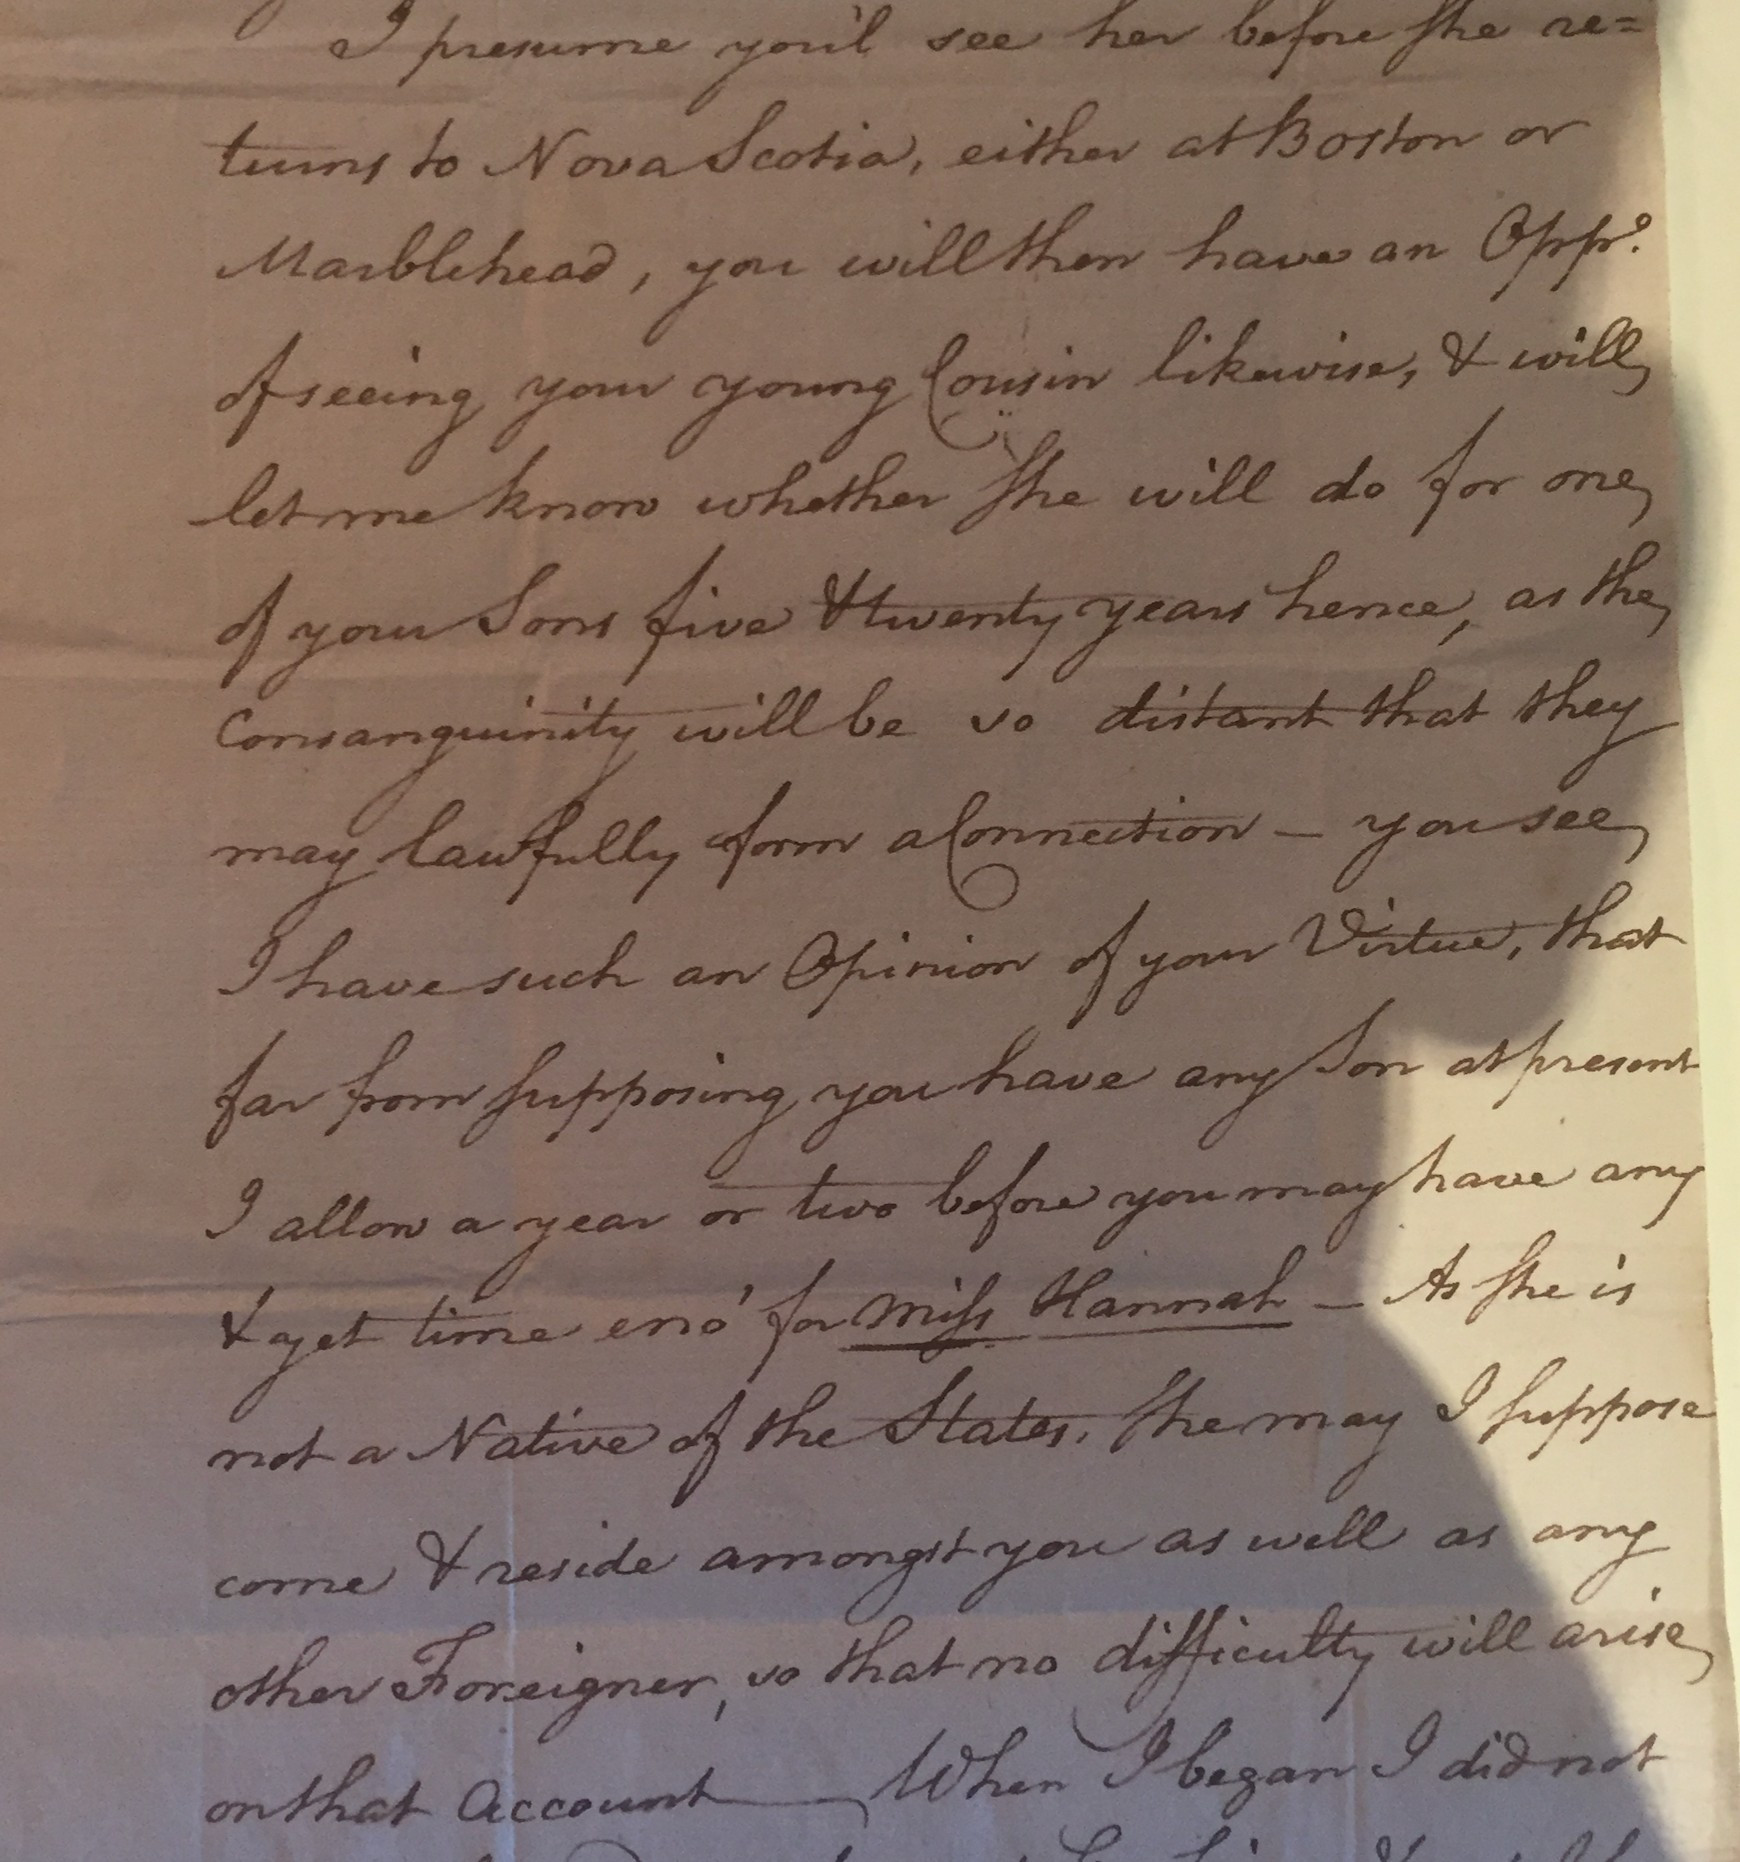 I presume you'l see her before She re=
turns to Nova Scotia, either at Boston or
Marblehead, you will then have an Oppo.
of seeing your young Cousin likewise, & will
let me know whether She will do for one
of your Sons five & twenty years hence, as the
Consanguinity will be so distant that they
may lawfully form a Connection – you see
I have such an Opinion of your Virtue, that
far from supposing you have any Son at present
I allow a year or two before you may have any
& yet time eno' for Miss Hannah – As She is
not a Native of the States, She may I suppose
come & reside amongst you as well as any
other Foreigner, so that no difficulty will arise
on that Account — When I began I did not